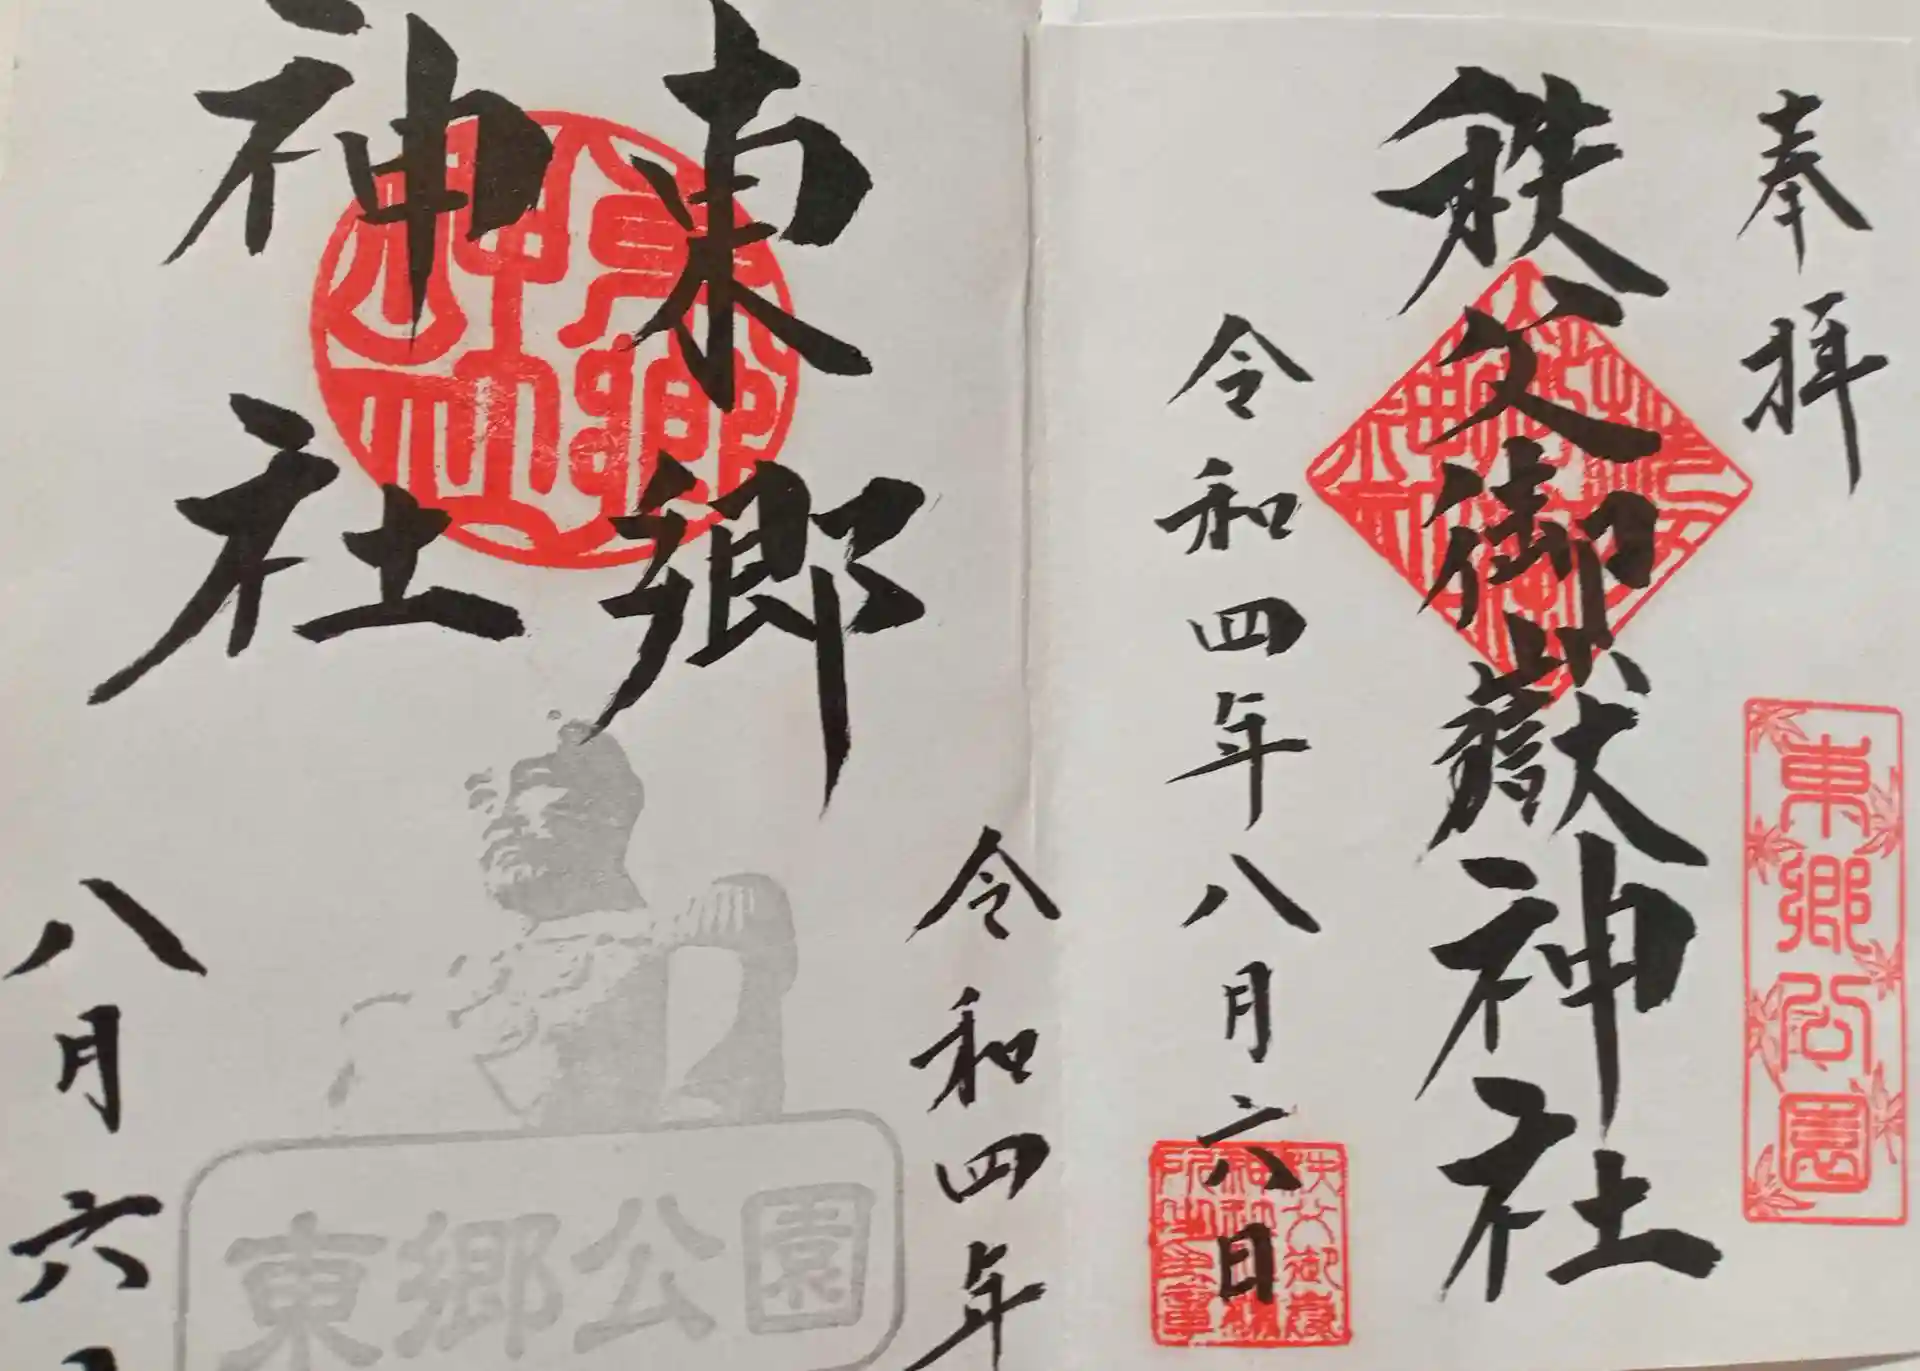 奉拝
東郷公園
秩父御嶽神社
令和四年八月六日
東郷
神社
令和四年
八月六
東郷公園